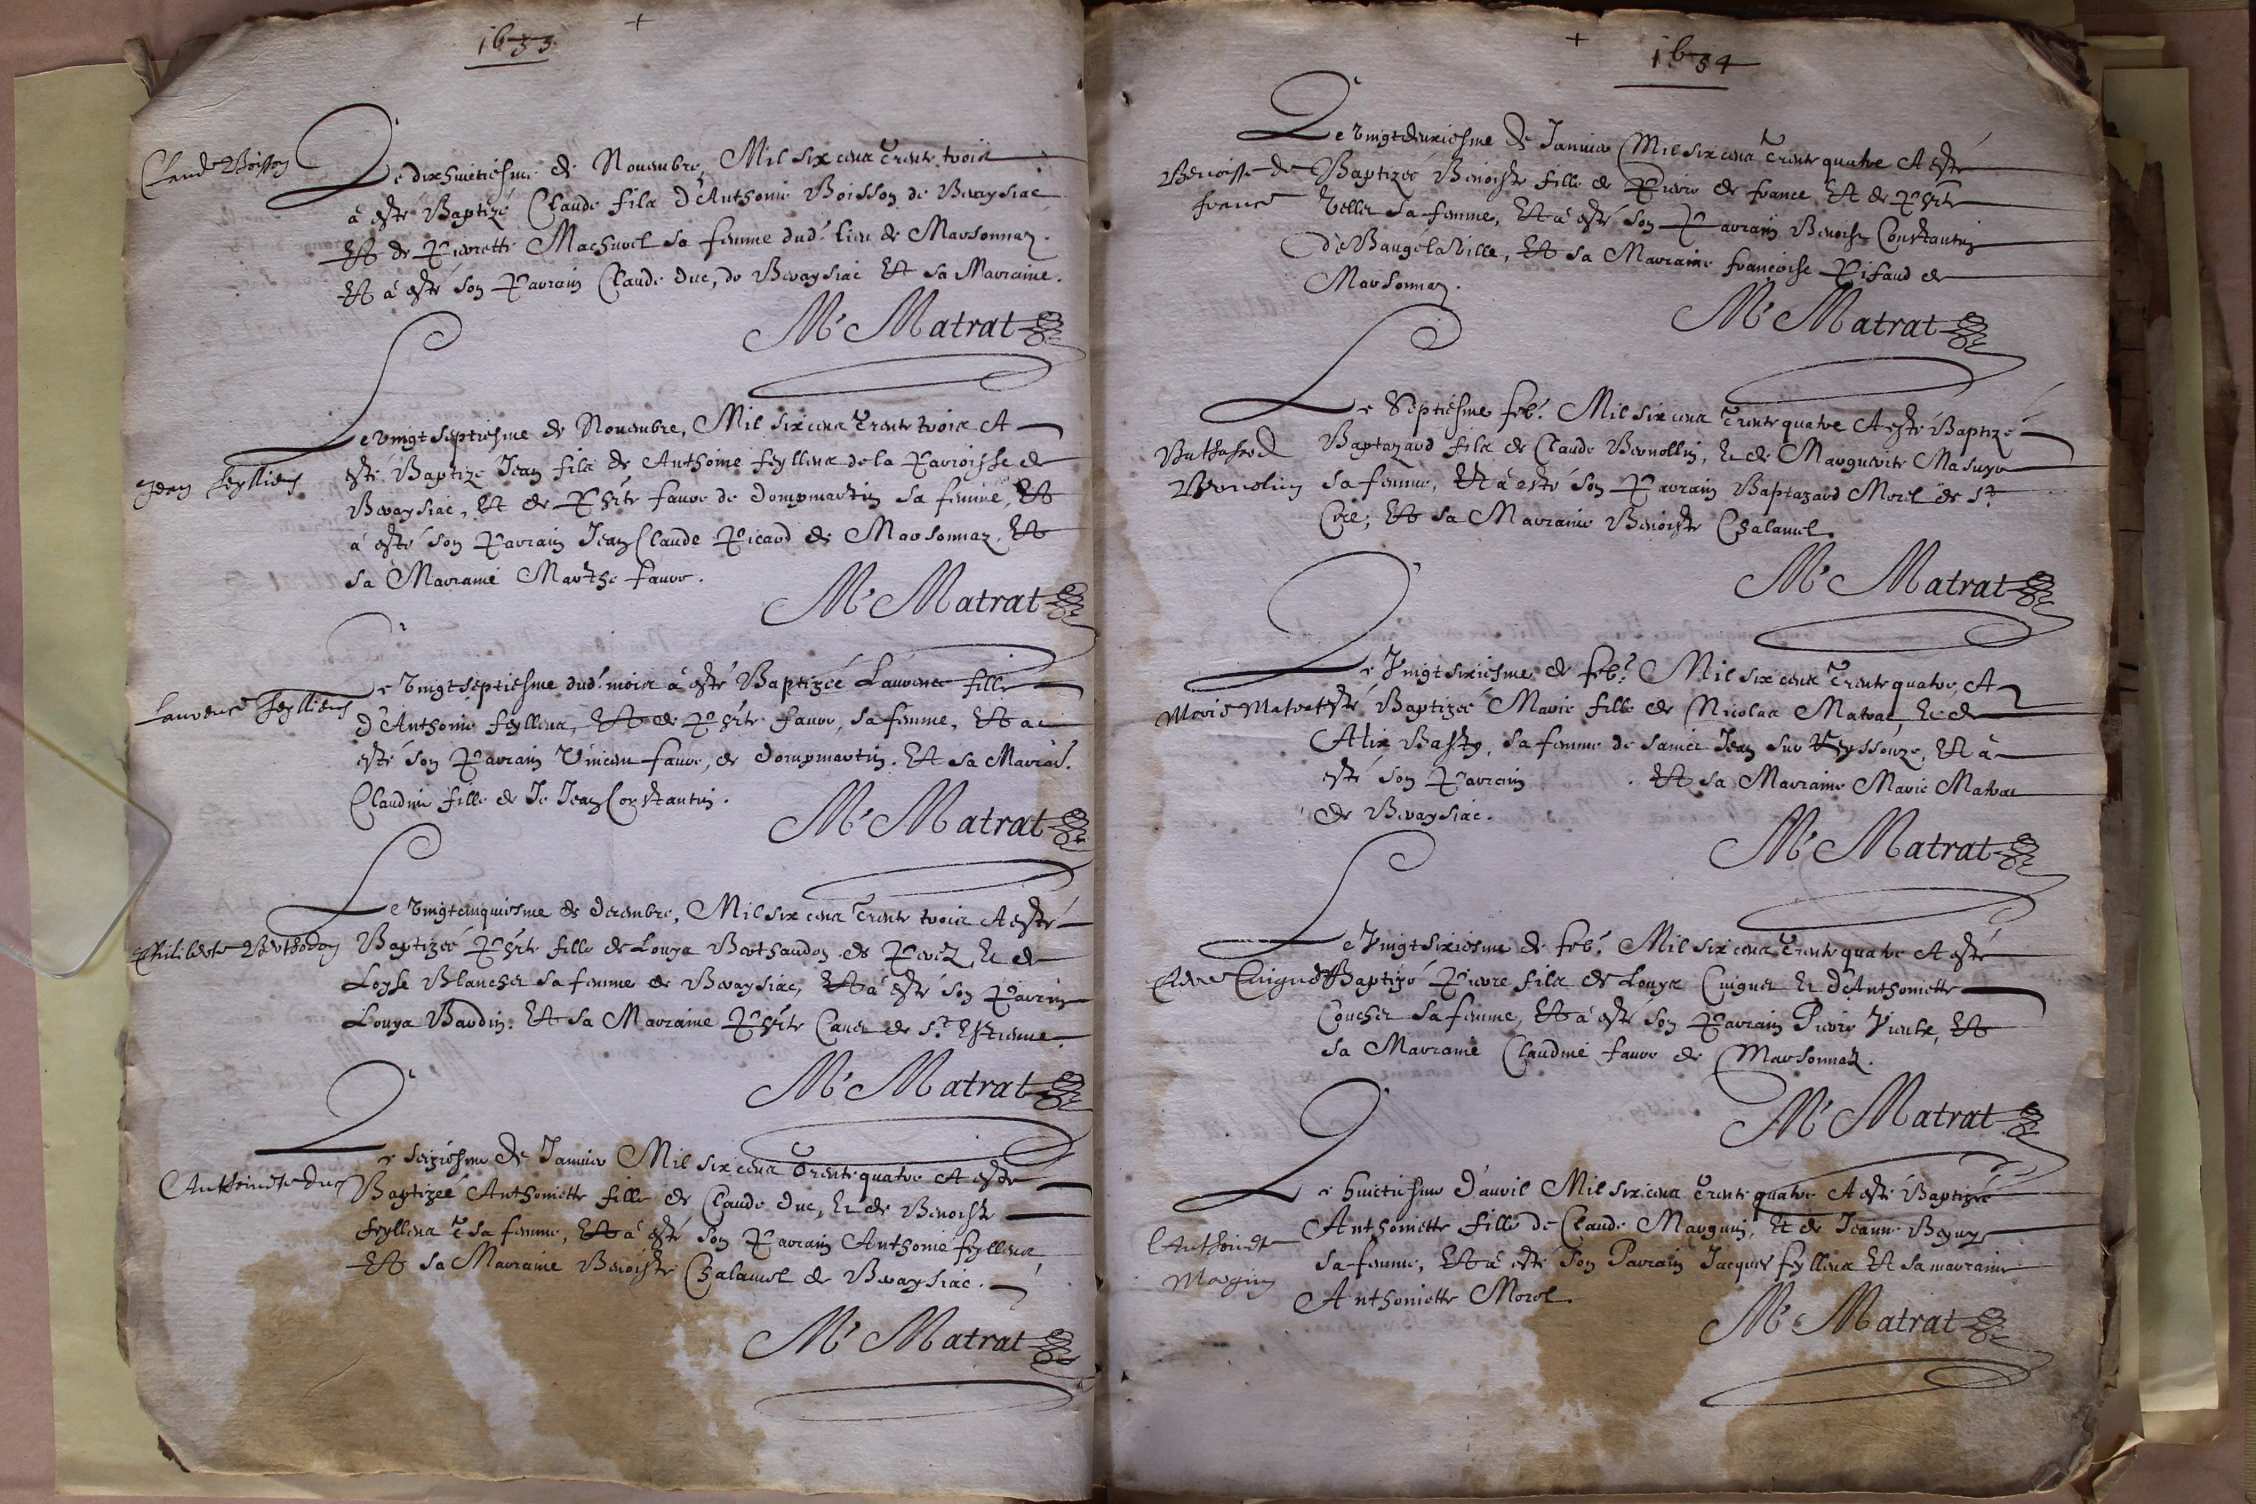 1633
Claude Boisson
Le dixhuictiesme de Nouembre, Mil six cens trente trois
à esté Baptizé Claude fils d'Anthoine Boisson de Beraysiac
Et de Pierrette Machurel sa femme dud. lieu de Marsonnaz.
Et à esté son Parrain Claude duc, de Beraysiac Et sa Marraine.
M. Matrat
Le vingt septiesme de Nouembre, Mil six cens trente trois A
Jean
esté Baptize Jean fils de Anthoine feyllens de la Parroisse de
Beraysiac, Et de Phīte faure de dompmartin sa femme, Et
à esté son Parrain Jean Claude Picard de Marsonnaz, Et
sa Marraine Marthe faure.
M. Matrat
Le vingt septiesme dud. mois à esté Baptizée Laurence fille
Laurence
d'Anthoine feyllens, Et de Phīte faure, sa femme, Et a
esté son Parrain Vincen faure, de dompmartin. Et sa Marrai.
Claudine fille de Jean Constantin.
M. Matrat
Le vingtcinquiesme de decembre, Mil six cens trente trois A esté
Philiberte Berthodon
Baptizée Phīte fille de Louys Berthaudon de Perez, Et de
Loyse Blanchet sa femme de Beraysiac, Et à esté son Parrin
Louys Baudin. Et sa Marraine Phīte Canet de St. Estienne.
M. Matrat
Le seiziesme de Januier Mil six cens trente quatre A esté
Anthoinette duc
Baptizée Anthoinette fille de Claude duc, Et de Benoiste
feyllens sa femme, Et à esté son Parrain Anthoine feyllens
Et sa Marraine Benoiste Chalamel de Beraysiac.
M. Matrat
1634
Le vingtdeuxiesme de Januier Mil six cens trente quatre A esté
Benoiste de
france
Baptizée Benoiste fille de Pierre de france Et de Phīte
Vellet sa femme, Et à esté son Parrain Benoist Constantin
de Baugé la Ville, Et sa Marraine françoise Pifaud de
Marsonnaz.
M. Matrat
Le Septiesme feb. Mil six cens trente quatre A esté Baptizé
Bathasard
Baptazard fils de Claude Bernollin, Et de Marguerite Masuyr
Bernolin
sa femme, Et à esté son Parrain Baptazard Morel de St.
Cire; Et sa Marraine Benoiste Chalamel.
M. Matrat
Le Vingt sixiesme de feb. Mil six cens trente quatre, A
Marie Matrat
esté Baptizée Marie fille de Nicolas Matrat Et de
Alix Basty, sa femme de sainct Jean sur Reyssouze, Et à
esté son Parrain . Et sa Marraine Marie Matrat
de Beraysiac.
M. Matrat
Le Vingt sixiesme de feb. Mil six cens trente quatre A esté
Baptizé Pierre fils de Louys Cuignet Et d'Anthoinette
Couchet sa femme, Et à esté son Parrain Pierre, Et
sa Marraine Claudine faure de Marsonnaz.
M. Matrat
Le huictiesme d'auril Mil six cens trente quatre A esté Baptizée
Anthoinette
Marguin
Anthoinette fille de Claude Marguin, Et de Jeanne
sa femme, Et à esté son Parrain Jacques feyllens Et sa marraine
Anthoinette Morel.
M. Matrat